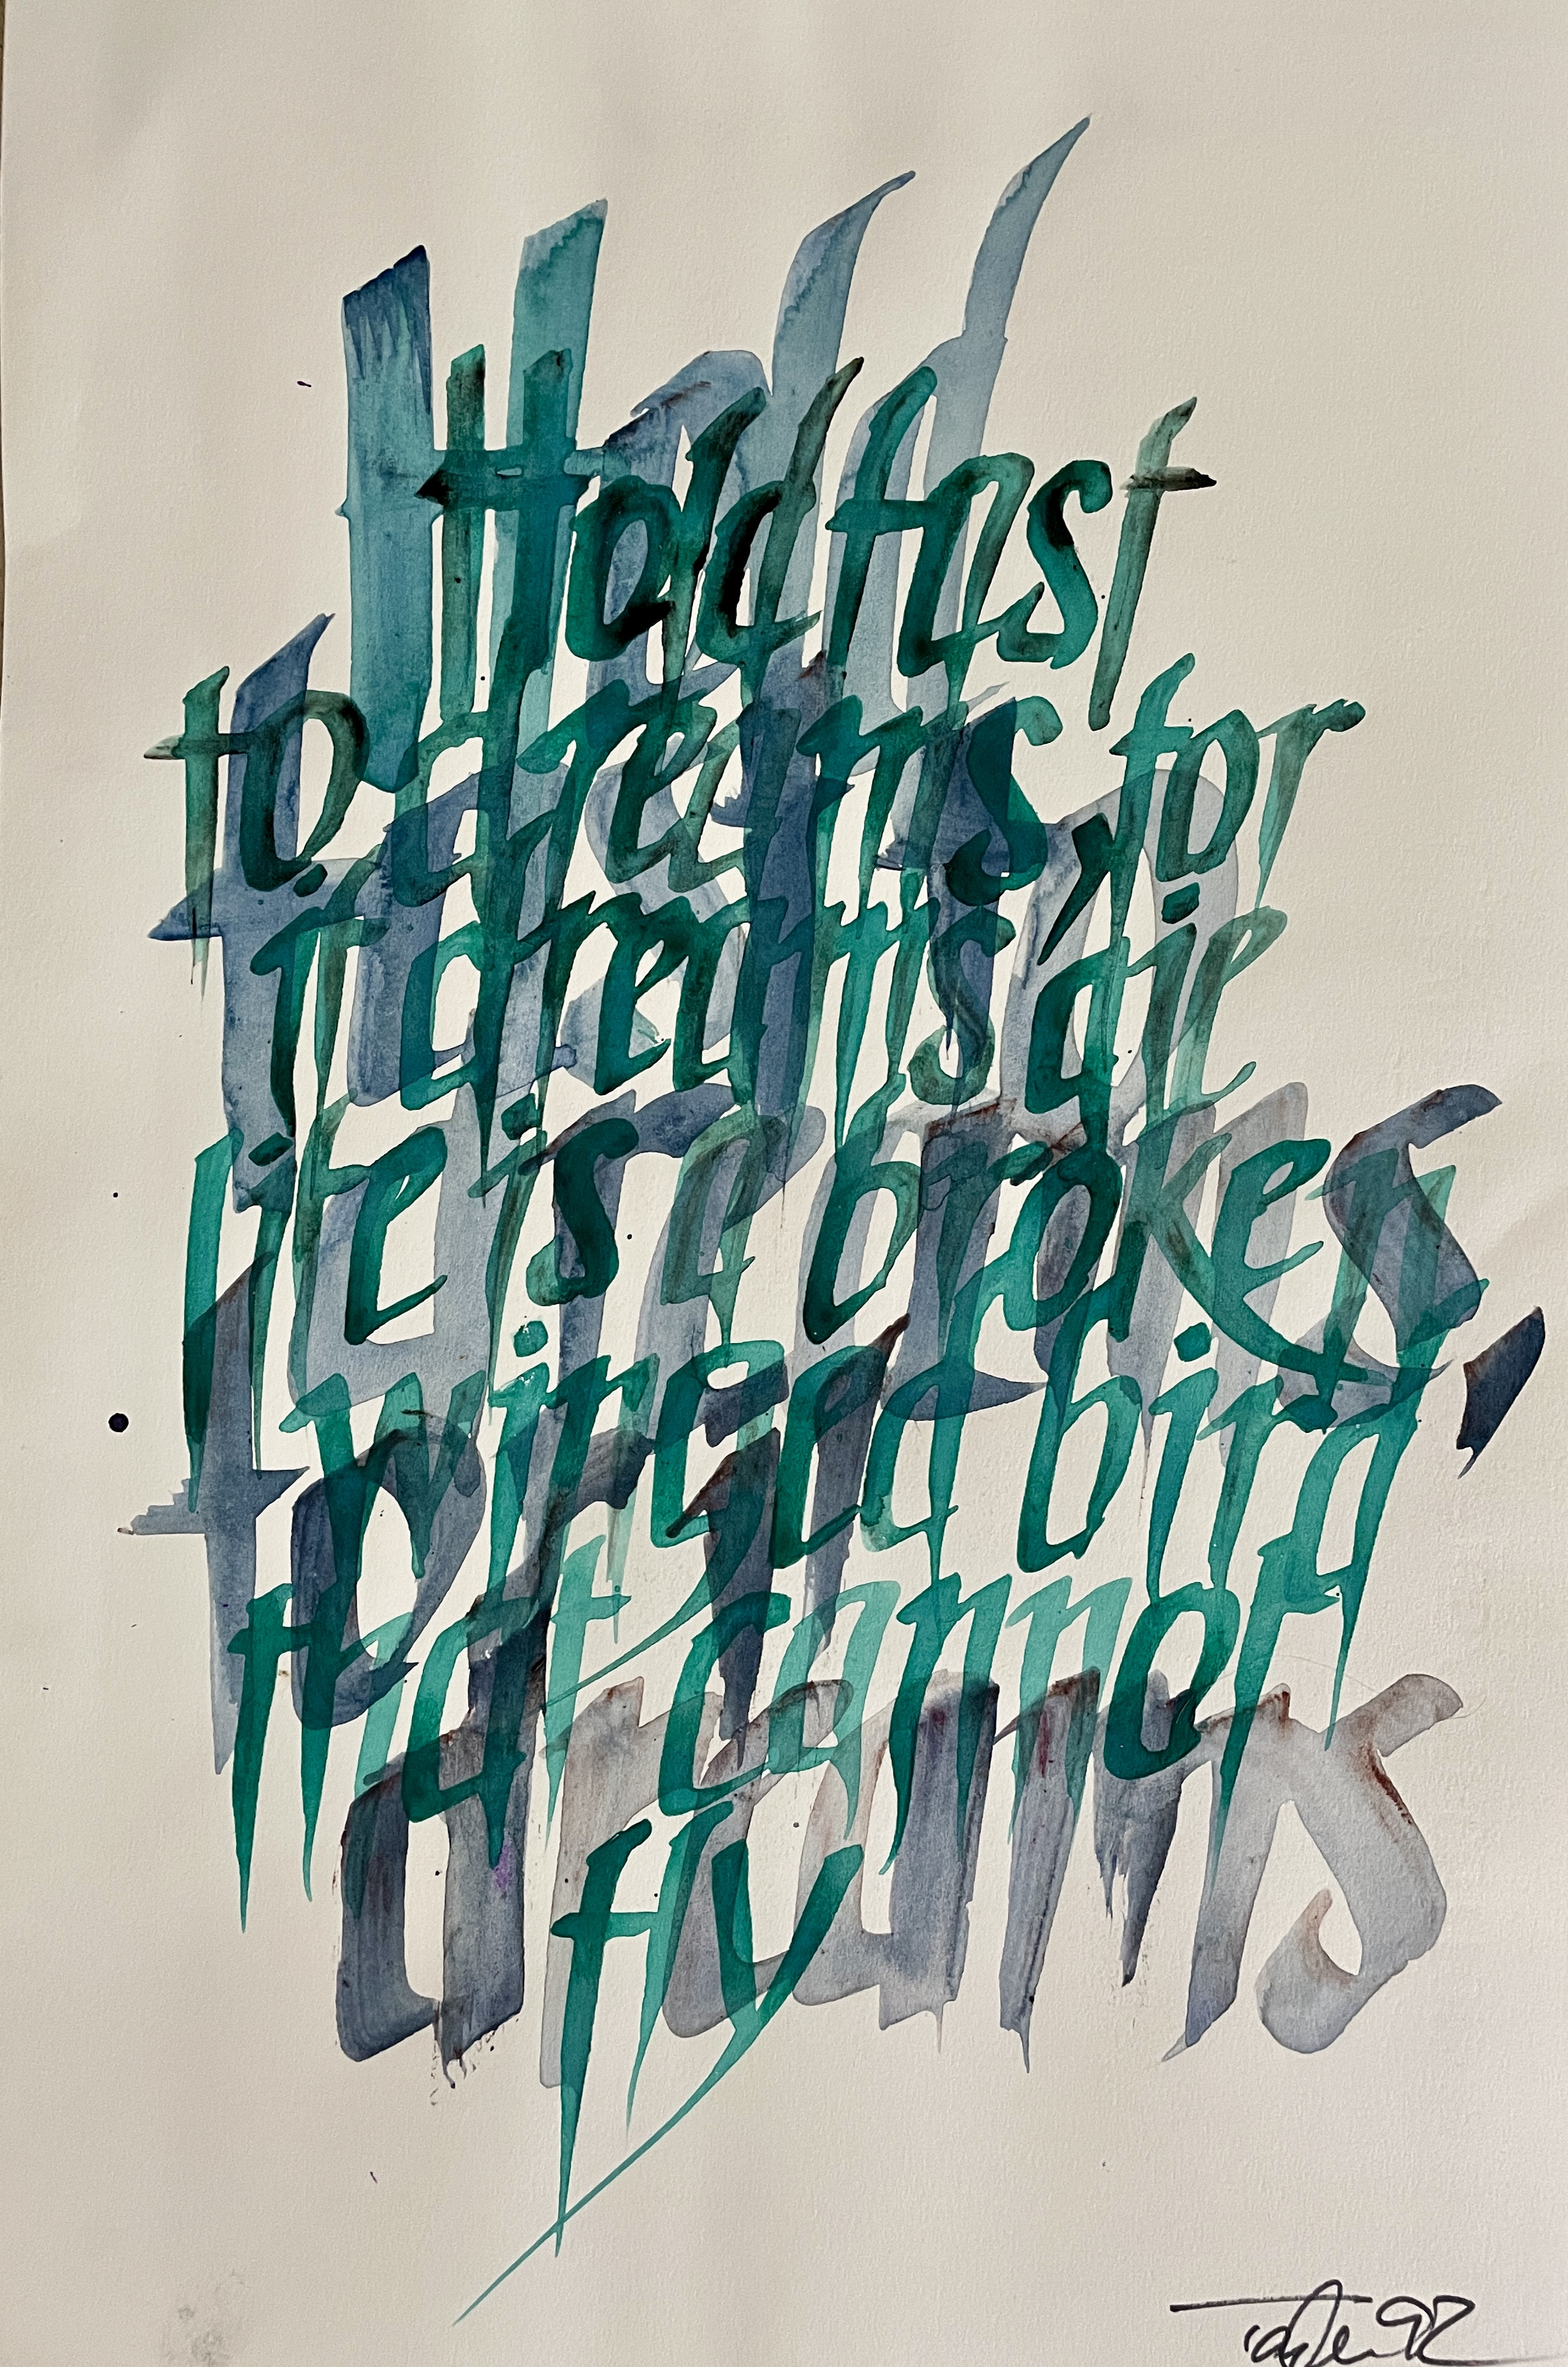 Hold fast
to dreams, for
if dreams die
life is a broken
winged bird
that cannot
fly
Hold
fast to
dreams,
for if
dreams
92